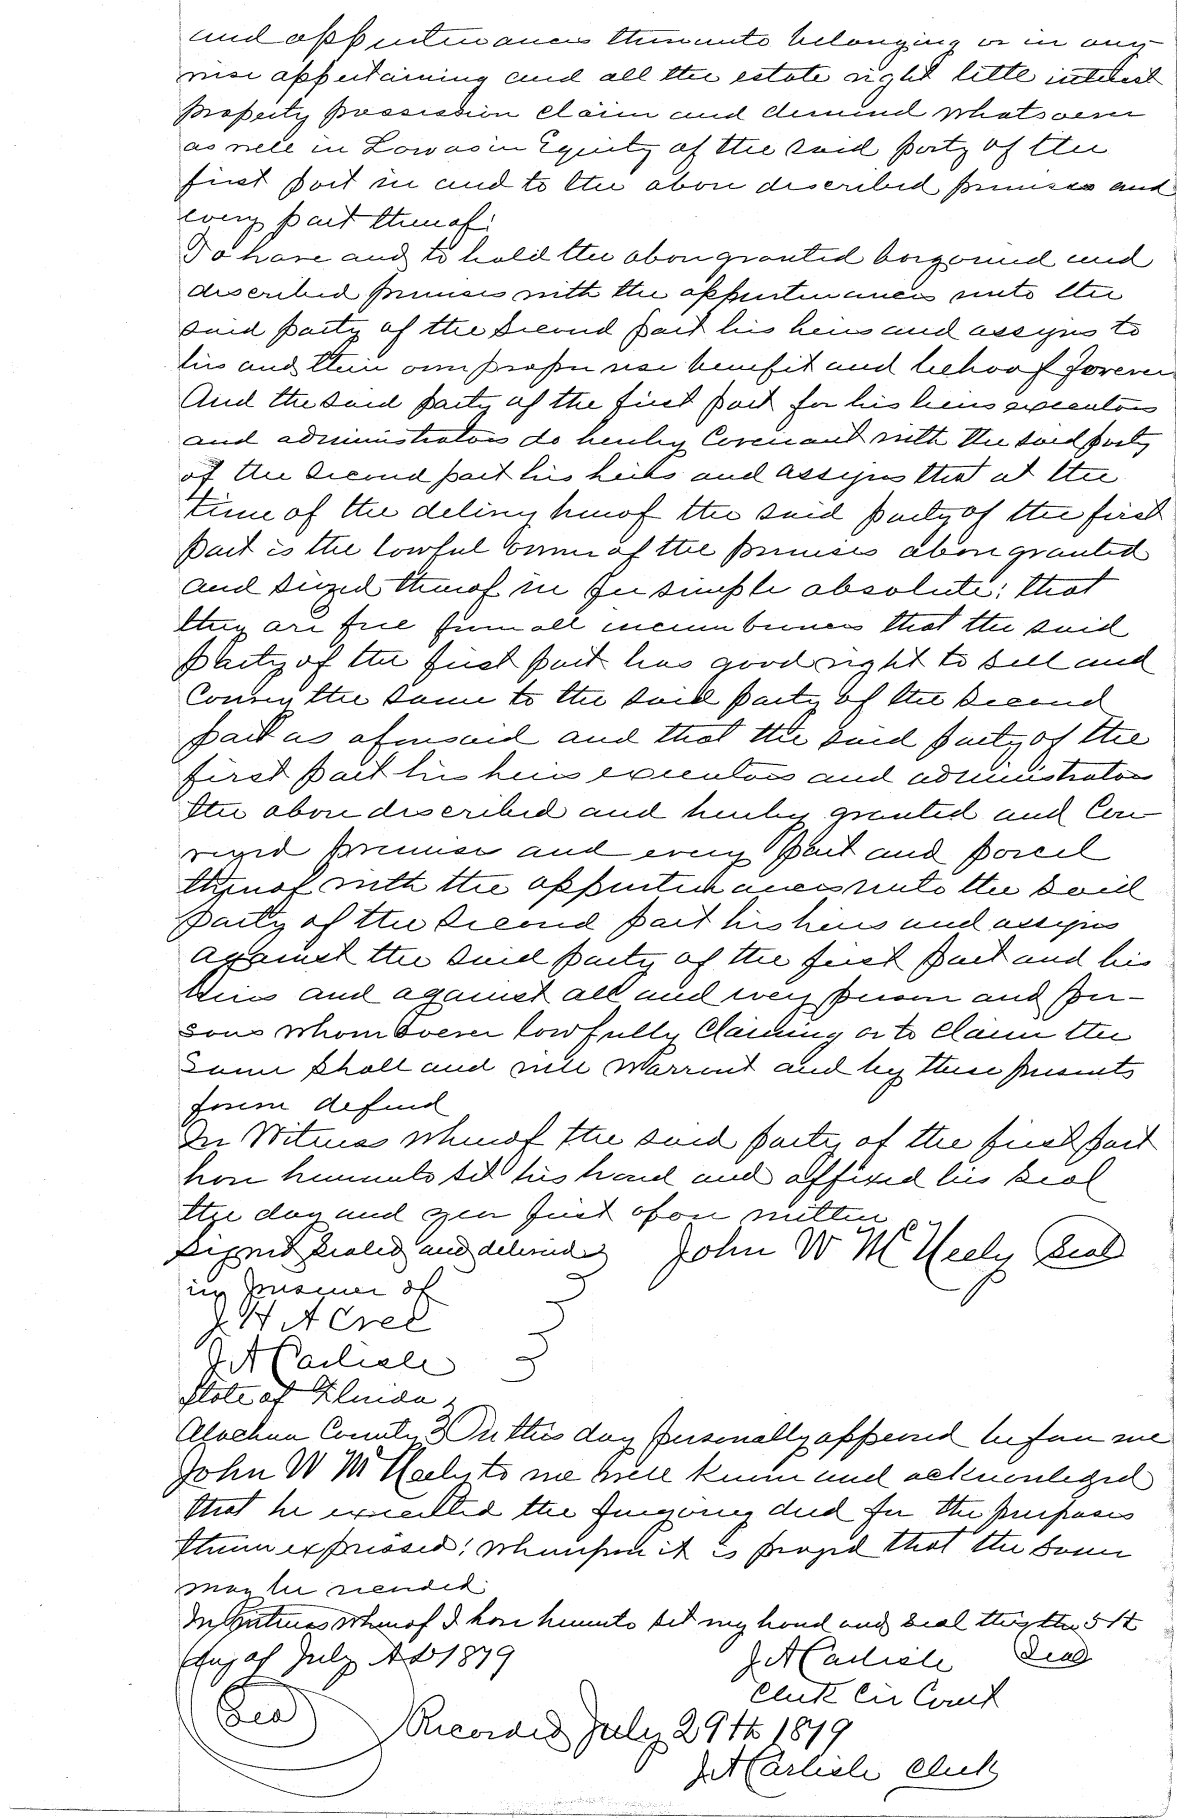 and appurtenances thereunto belonging or in any-
wise appertaining and all the estate right title interest
property possession claim and demand whatsoever
as well in Law as in Equity of the said party of the
first part in and to the above described premises and
every part thereof:
To have and to hold the above granted bargained and
described premises with the appurtenances unto the
said party of the second part his heirs and assigns to
his and their own proper use benefit and behoof forever
And the said party of the first part for his heirs executors
and administrators do hereby Covenant with the said party
of the second part his heirs and assigns that at the
time of the delivery hereof the said party of the first
part is the lawful owner of the premises above granted
and seized thereof in fee simple absolute; that
they are free from all incumbrances that the said
party of the first part has good right to sell and
Convey the same to the said party of the second
part as aforesaid and that the said party of the
first part his heirs executors and administrators
the above described and hereby granted and Con-
veyed premises and every part and parcel
thereof with the appurtenances unto the said
party of the second part his heirs and assigns
against the said party of the first part and his
heirs and against all and every person and per-
sons whomsoever lawfully Claiming or to Claim the
Same shall and will Warrent and by these presents
forever defend
In Witness whereof the said party of the first part
have hereunto set his hand and affixed his seal
the day and year first afore written
Signed Sealed and delivered John W McNeely Seal
in presence of
J. H A Creel
J A Carlisle
State of Florida
Alachua County On this day personally appeared before me
John W McNeely to me well known and acknowledged
that he executed the foregoing deed for the purposes
therein expressed; whereupon it is prayed that the same
may be recorded.
In Witness whereof I have hereunto set my hand and seal this the 5th
day of July AD 1879 J A Carlisle Seal
Clerk Cir Court
Seal Recorded July 29th 1879
J A Carlisle Clerk